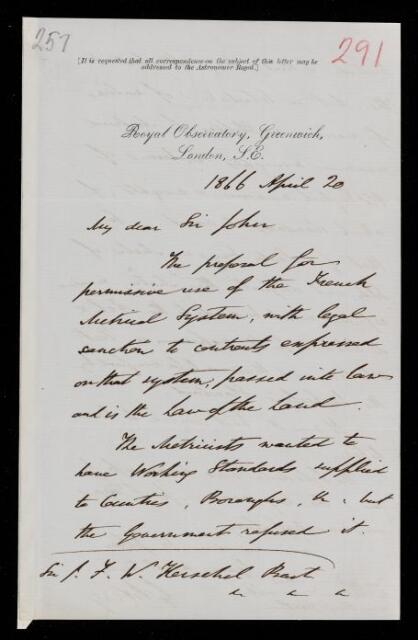 257
291
[It is requested that all correspondence on the subject of this letter may be
addressed to the Astronomer Royal.]
Royal Observatory, Greenwich,
London, S.E.
1866 April 20
My dear Sir John
The proposal for
permissive use of the French
Metrical System, with legal
sanction to contracts expressed
on that system, passed into law
and is the Law of the Land.
The Metricists wanted to
have Working Standards supplied
to Counties, Boroughs, &c. but
the Government refused it.
Sir J. F. W. Herschel Bart